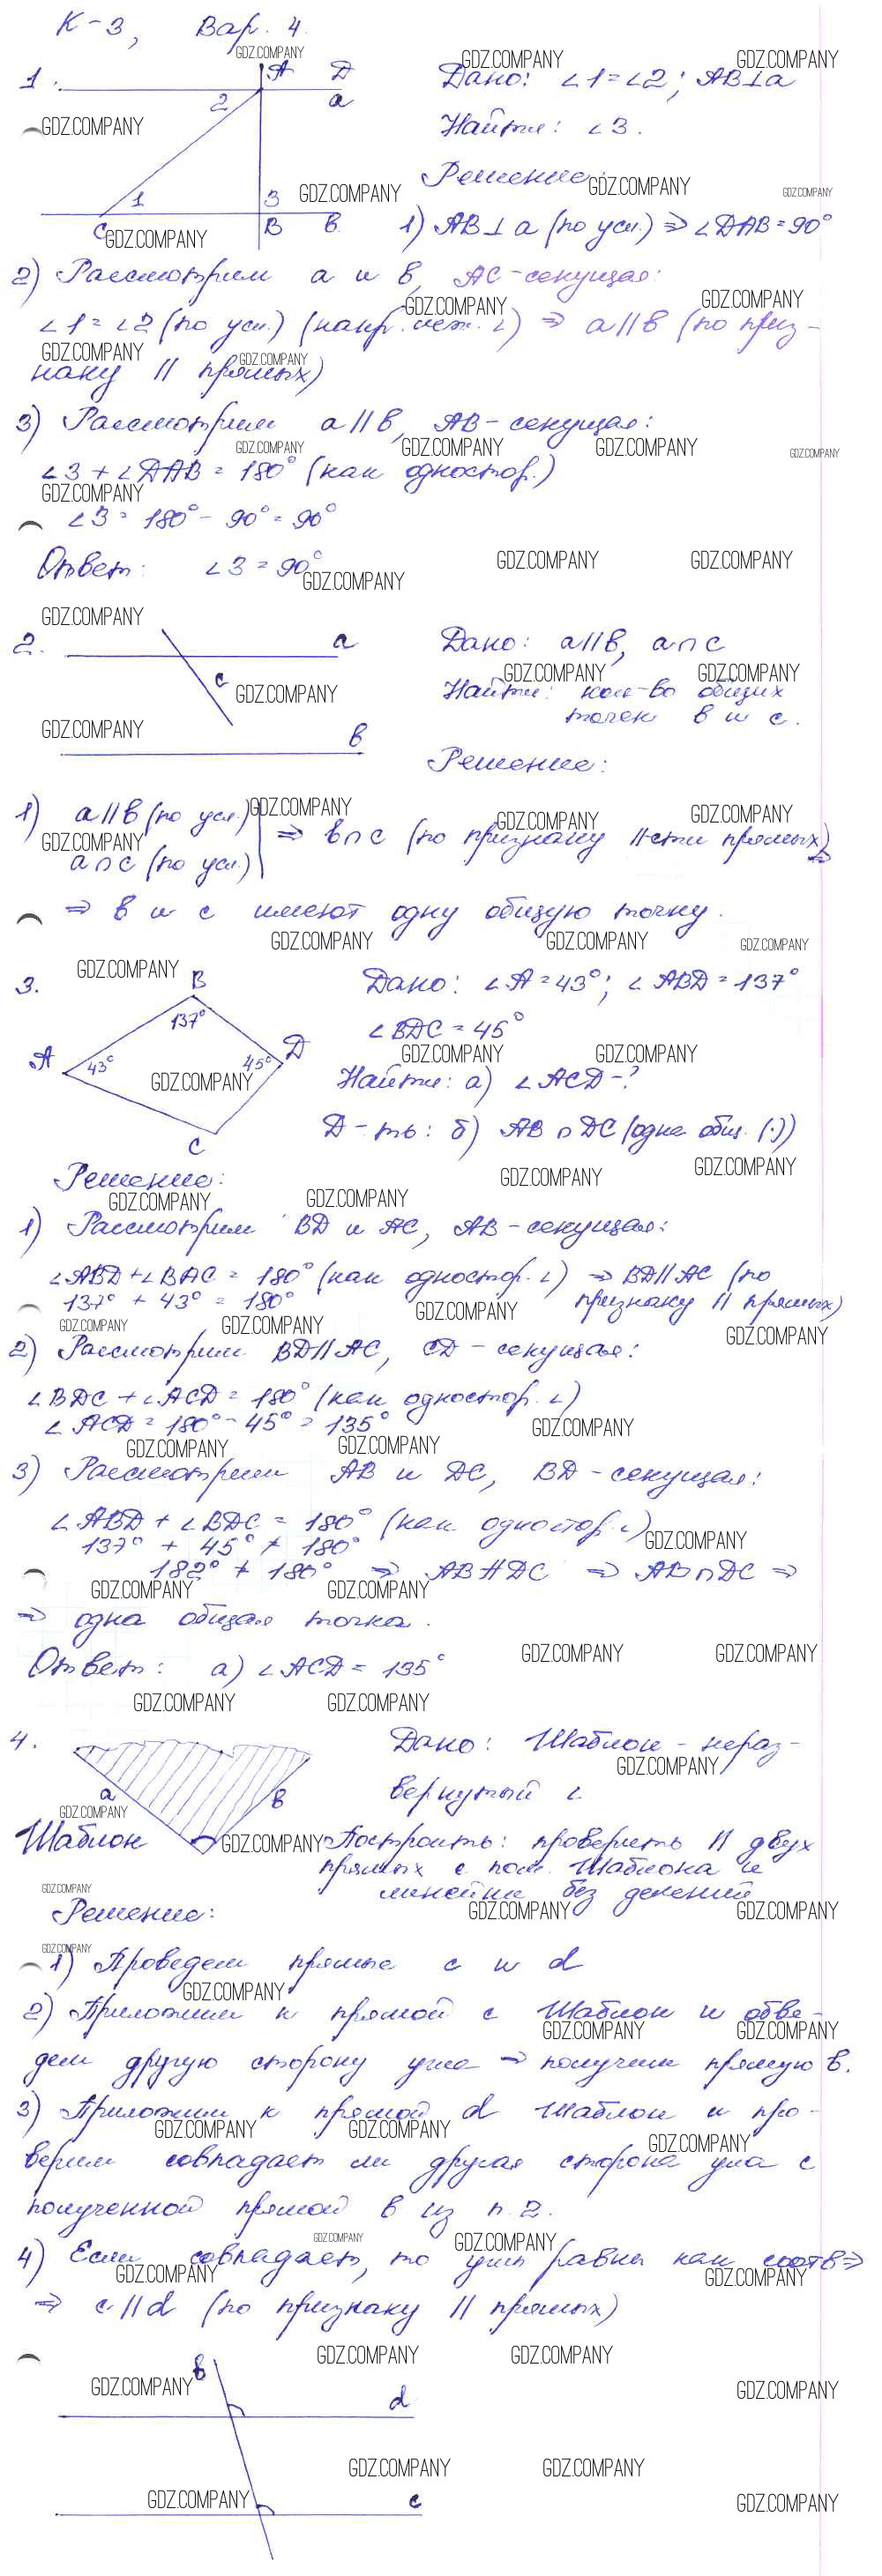 К-3, Вар. 4.
1.
A D
a
2
1
3
C
B в
Дано: ∠1=∠2; AB⊥a
Найти: ∠3.
Решение:
1) AB⊥a (по усл.) ⇒ ∠DAB=90°
2) Рассмотрим a и в, AC-секущая:
∠1=∠2 (по усл.) (накр. леж. ∠) ⇒ a||в (по приз-
наку || прямых)
3) Рассмотрим a||в, AB-секущая:
∠3+∠DAB=180° (как одностор.)
∠3=180°-90°=90°
Ответ: ∠3=90°
2.
a
c
в
Дано: a||в, a∩c
Найти: кол-во общих
точек в и c.
Решение:
1) a||в (по усл.)
a∩c (по усл.)
⇒ в∩c (по признаку ||-сти прямых) ⇒
⇒ в и c имеют одну общую точку.
3.
B
137°
A 43°
45° D
C
Дано: ∠A=43°; ∠ABD=137°
∠BDC=45°
Найти: а) ∠ACD-?
Д-ть: б) AB∩DC (одна общ. (·))
Решение:
1) Рассмотрим BD и AC, AB-секущая:
∠ABD+∠BAC=180° (как одностор. ∠) ⇒ BD||AC (по
137°+43°=180° признаку || прямых)
2) Рассмотрим BD||AC, CD-секущая:
∠BDC+∠ACD=180° (как одностор. ∠)
∠ACD=180°-45°=135°
3) Рассмотрим AB и DC, BD-секущая:
∠ABD+∠BDC=180° (как одностор. ∠)
137°+45°≠180°
182°≠180° ⇒ AB∦DC ⇒ AB∩DC ⇒
⇒ одна общая точка.
Ответ: а) ∠ACD=135°
4.
a
в
Шаблон
Дано: Шаблон - нераз-
вернутый ∠
Построить: проверить || двух
прямых с пом. Шаблона и
линейки без делений
Решение:
1) Проведем прямые c и d
2) Приложим к прямой c Шаблон и обве-
дем другую сторону угла ⇒ получим прямую в.
3) Приложим к прямой d шаблон и про-
верим совпадает ли другая сторона угла с
полученной прямой в из п. 2.
4) Если совпадает, то углы равны как соотв ⇒
⇒ c||d (по признаку || прямых)
в
d
c
GDZ.COMPANY